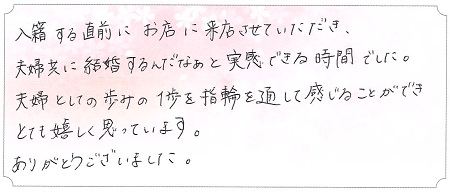 入籍する直前にお店に来店させていただき、
夫婦共に結婚するんだなぁと実感できる時間でした。
夫婦としての歩みの1歩を指輪を通して感じることができ
とても嬉しく思っています。
ありがとうございました。